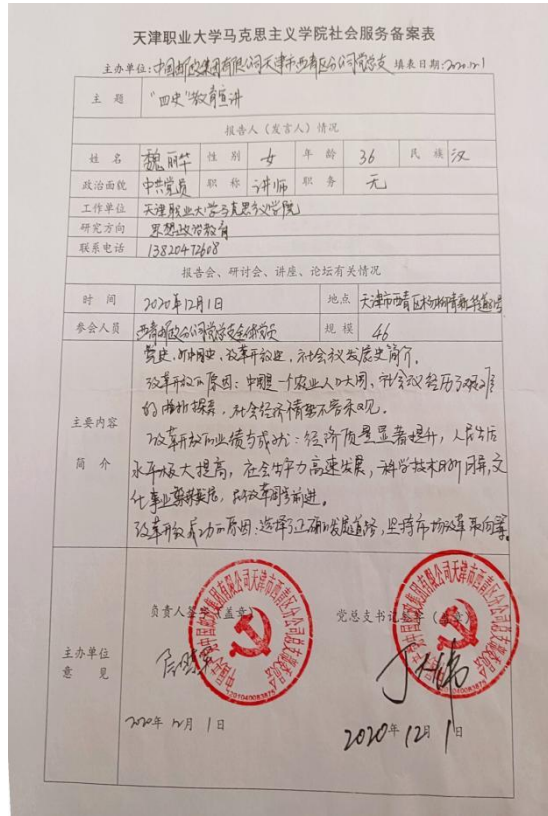 天津职业大学马克思主义学院社会服务备案表
主办单位:中国邮政集团有限公司天津市西青区分公司党总支 填表日期:2020.12.1
主 题 “四史”教育宣讲
报告人（发言人）情况
姓 名 魏丽华 性 别 女 年 龄 36 民 族 汉
政治面貌 中共党员 职 称 讲师 职 务 无
工作单位 天津职业大学马克思主义学院
研究方向 思想政治教育
联系电话 13820472608
报告会、研讨会、讲座、论坛有关情况
时 间 2020年12月1日 地点 天津市西青区杨柳青新华道
参会人员 西青邮政分公司党总支全体党员 规 模 46
主要内容
简 介
党史、新中国史、改革开放史、社会主义发展史简介。
改革开放的原因：中国是一个农业人口大国，社会主义经历了艰难
的曲折探索，社会经济情势不容乐观。
改革开放的业绩与成就：经济质量显著提升，人民生活
水平极大提高，社会生产力高速发展，科学技术日新月异，文
化事业 改革同步前进。
改革开放成功的原因：选择了正确的发展道路，坚持市场改革取向等。
主办单位
意 见
负责人签字（盖章）
党总支书记签字（盖章）
中国邮政集团有限公司天津市西青区分公司总支部委员会
1201040083875
2020年12月1日
2020年12月1日